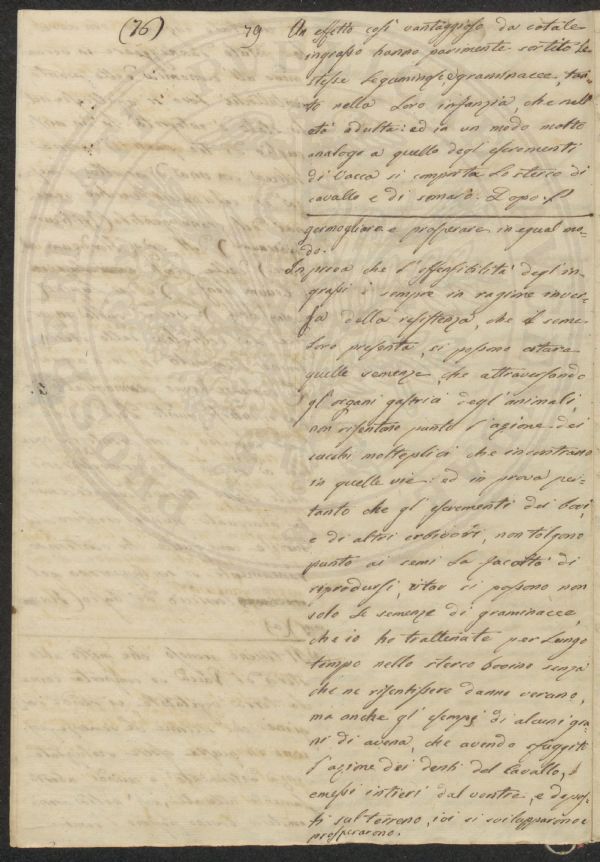 (76) 79 Un effetto così vantaggioso da cotale
ingrasso hanno parimente sortito le
stesse leguminose e graminacce, tan-
to nella loro infanzia, che nell'
età adulta: ed in un modo molto
analogo a quello degl' escrementi
di Vacca si comporta lo sterco di
cavallo e di somaro. Dopo
germogliare e prosperare in egual mo-
do.
In prova che l'offensibilità degl' in-
grassi è sempre in ragione inver-
sa della resistenza, che il seme
loro presenta, si possono citare
quelle semenze, che attraversando
gl' organi gastrici degl' animali,
non risentono punto l'azione dei
succhi molteplici che incontrano
in quelle vie: ed in prova per-
tanto che gl' escrementi dei bovi,
e di altri erbivori, non tolgono
punto ai semi la facoltà di
riprodursi, citar si possono non
solo le semenze di graminacce,
che io ho trattenate per lungo
tempo nello sterco bovino senza
che ne risentissero danno verano,
ma anche gl' esempj di alcuni gra-
ni di avena, che avendo sfuggiti
l'azione dei denti del Cavallo,
emessi intieri dal ventre, e depos-
ti sul terreno, ivi si svilupparono e
prosperarono.